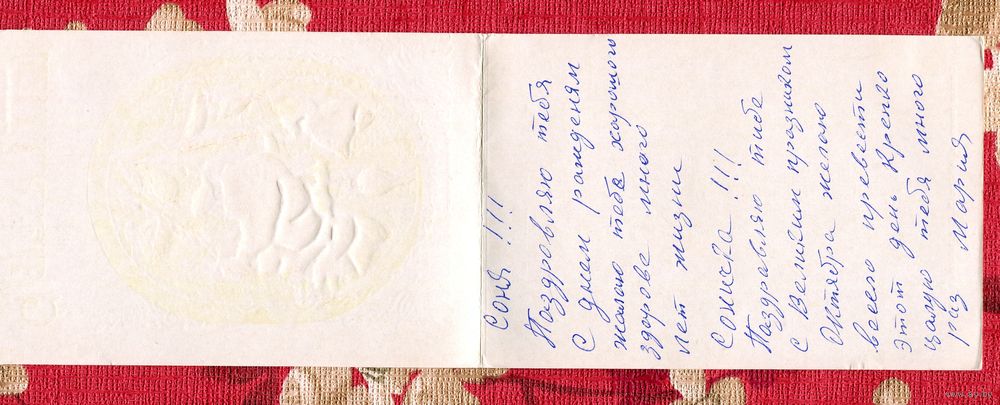 Соня!!!
Паздровляю тебя
С днем ражденям
жалаю тебе харошого
здорове много
лет жизни
Соничка!!!
Паздравляю тибе
с Великим празником
Октября желаю
всего превести
этот день Крепко
цалую тебя много
раз Мария